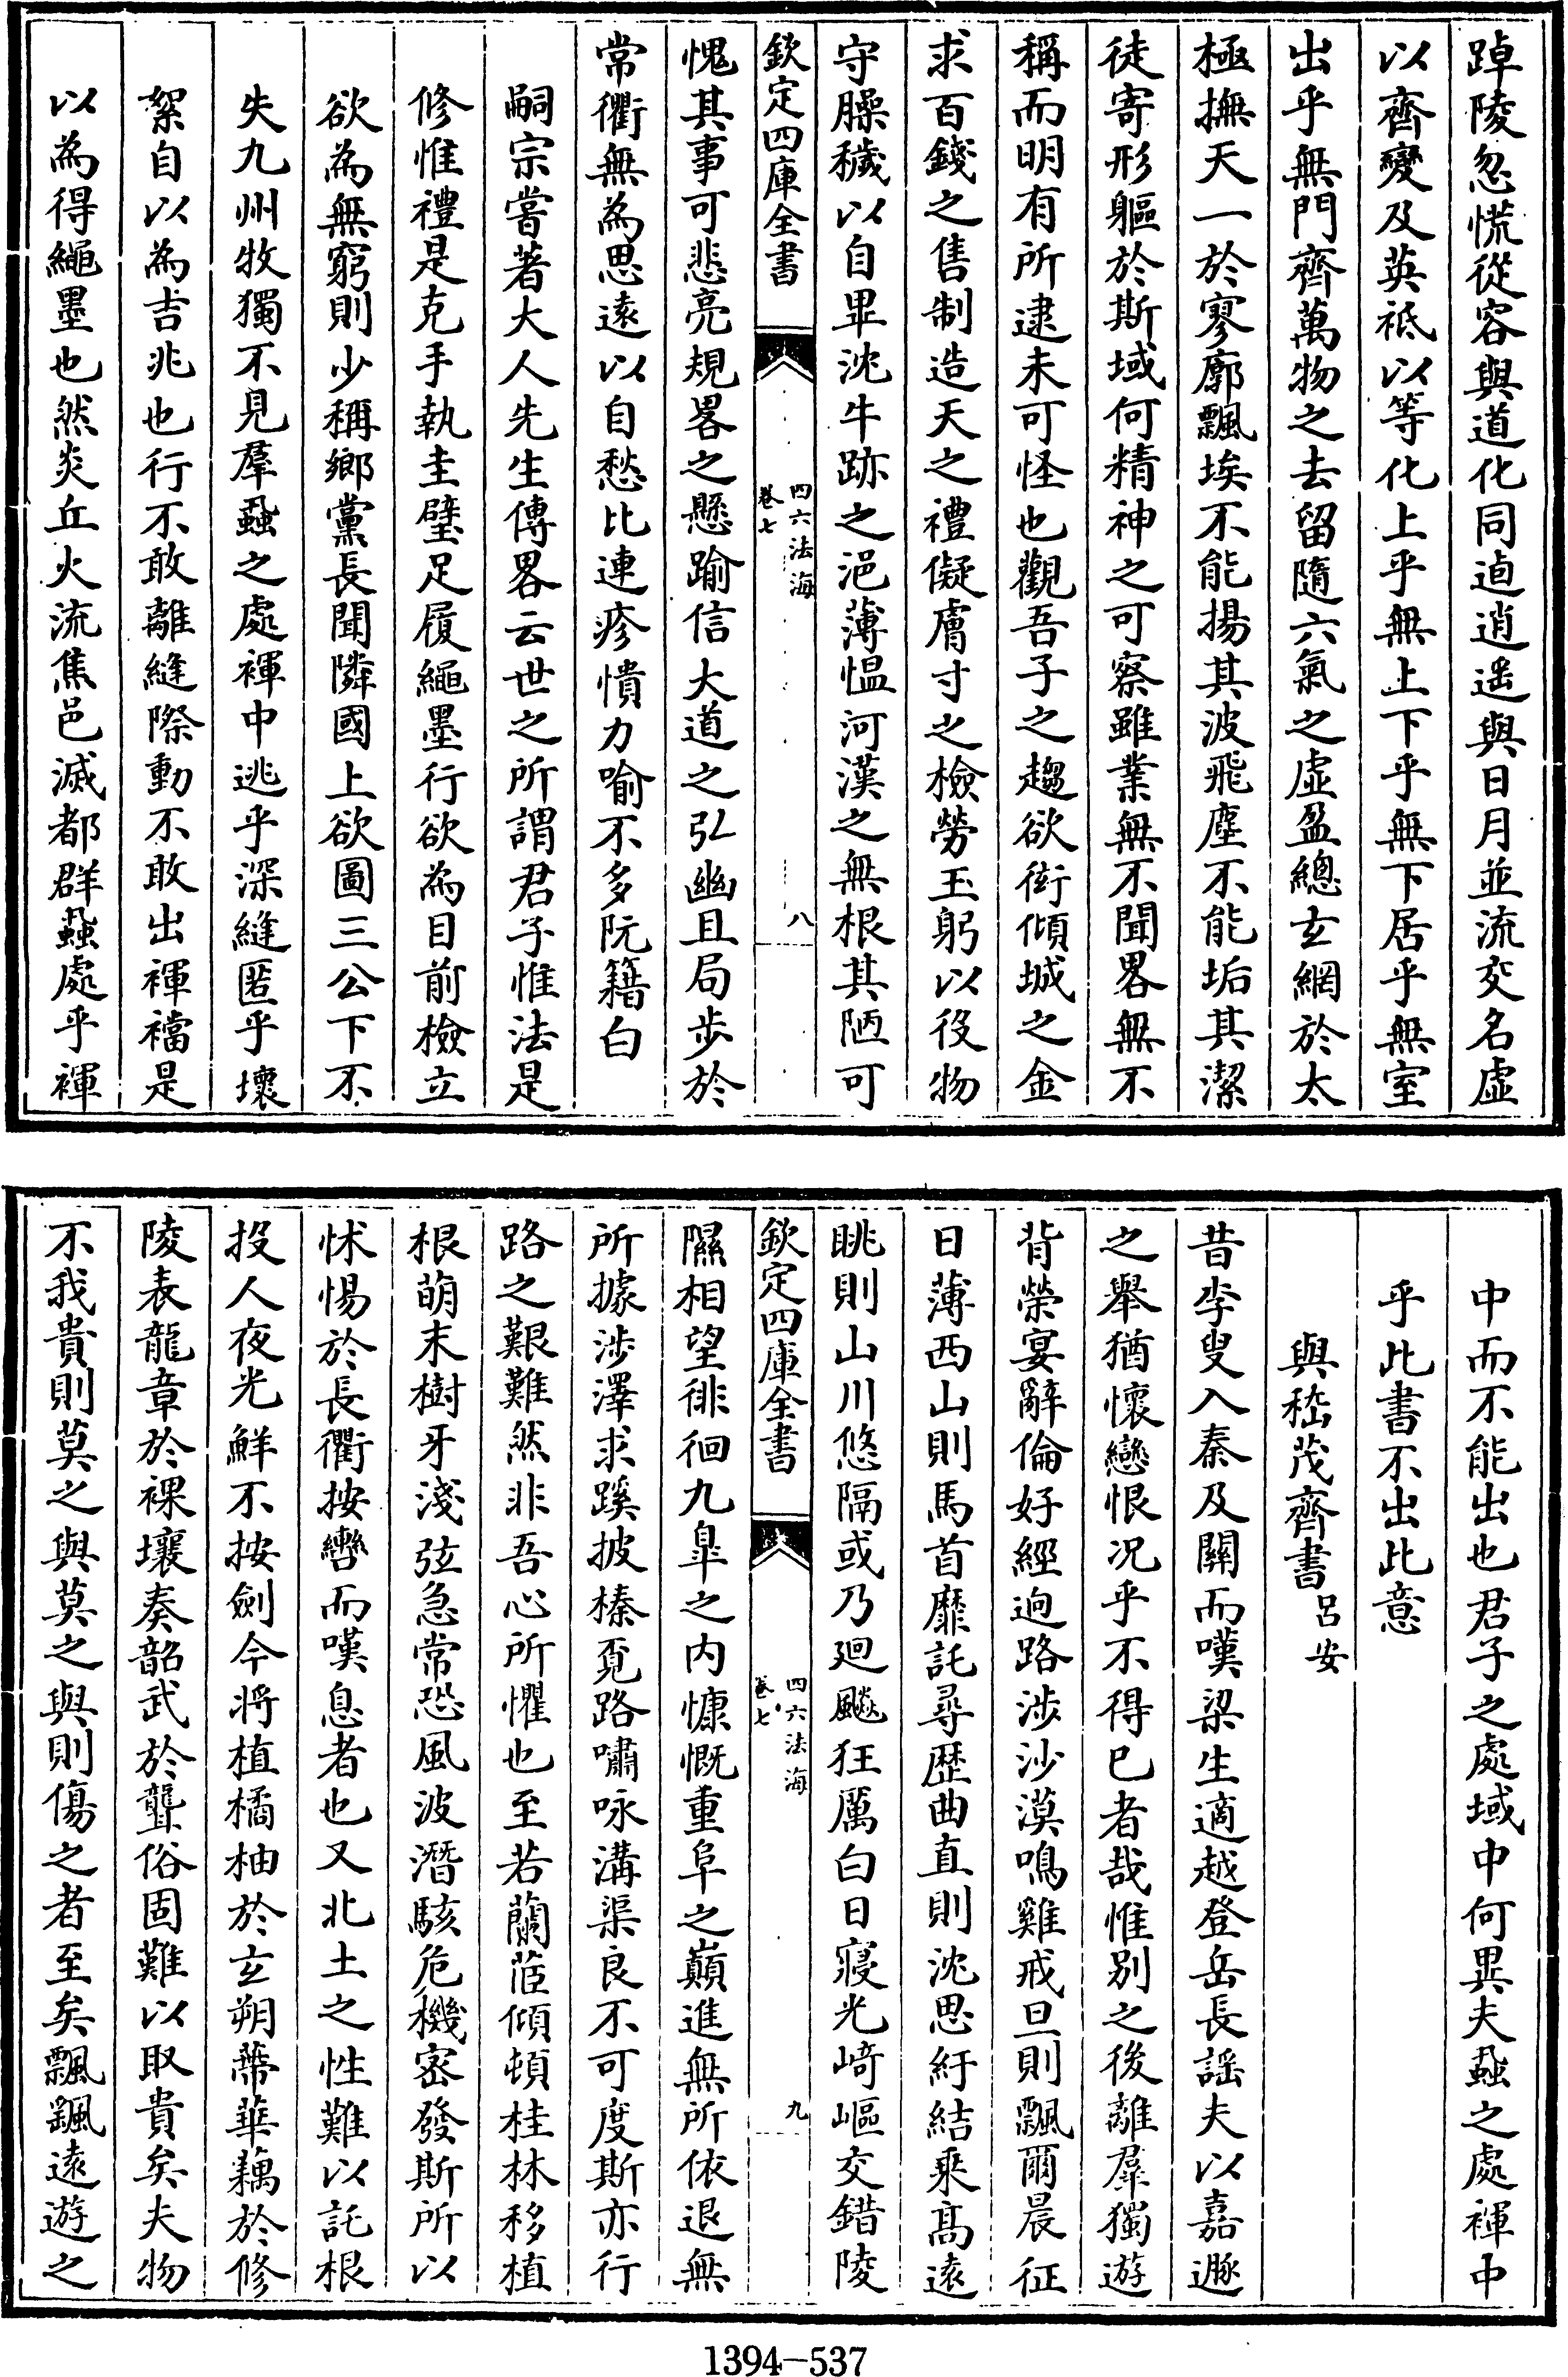 踔陵忽慌從容與道化同逌逍遥與日月並流交名虛
以齊變及英祗以等化上乎無上下乎無下居乎無室
出乎無門齊萬物之去留隨六氣之虛盈總玄網於太
極撫天一於寥廓飄埃不能揚其波飛塵不能垢其潔
徒寄形軀於斯域何精神之可察雖業無不聞畧無不
稱而明有所逮未可怪也觀吾子之趨欲衒傾城之金
求百錢之售制造天之禮儗膚寸之檢勞玉躬以役物
守臊穢以自畢沈牛跡之浥薄愠河漢之無根其陋可
欽定四庫全書
四六法海
卷七
八
愧其事可悲亮規畧之懸踰信大道之弘幽且局步於
常衢無為思遠以自愁比連疹憒力喻不多阮籍白
嗣宗嘗著大人先生傳畧云世之所謂君子惟法是
修惟禮是克手執圭璧足履繩墨行欲為目前檢立
欲為無窮則少稱鄉黨長聞隣國上欲圖三公下不
失九州牧獨不見羣蝨之處褌中逃乎深縫匿乎壞
絮自以為吉兆也行不敢離縫際動不敢出褌襠是
以為得繩墨也然炎丘火流焦邑滅都群蝨處乎褌
中而不能出也君子之處域中何異夫蝨之處褌中
乎此書不出此意
與嵇茂齊書 呂安
昔李叟入秦及關而嘆梁生適越登岳長謡夫以嘉遯
之舉猶懷戀恨况乎不得已者哉惟别之後離羣獨遊
背榮宴辭倫好經逈路涉沙漠鳴雞戒旦則飄爾晨征
日薄西山則馬首靡託尋歷曲直則沈思紆結乘高遠
眺則山川悠隔或乃廻飈狂厲白日寢光崎嶇交錯陵
欽定四庫全書
四六法海
卷七
九
隰相望徘徊九臯之内慷慨重阜之巔進無所依退無
所據涉澤求蹊披榛覓路嘯咏溝渠良不可度斯亦行
路之艱難然非吾心所懼也至若蘭茝傾頓桂林移植
根萌未樹牙淺弦急常恐風波潛駭危機密發斯所以
怵惕於長衢按轡而嘆息者也又北土之性難以託根
投人夜光鮮不按劍今將植橘柚於玄朔蔕華藕於修
陵表龍章於裸壤奏韶武於聾俗固難以取貴矣夫物
不我貴則莫之與莫之與則傷之者至矣飄颻遠遊之
1394-537